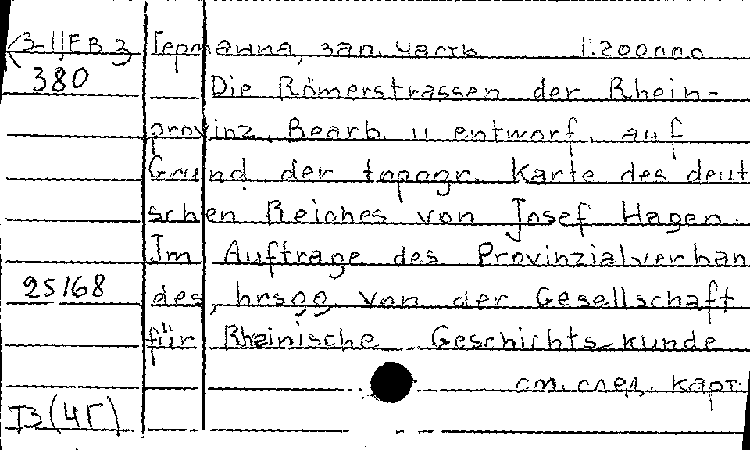 (3-11ЕВ3 Германия, зап. часть 1:200000
380 Die Römerstrassen der Rhein-
provinz. Bearb. u entworf. auf
Grund der topogr. Karte des deut
schen Reiches von Josef Hagen.
Im Auftrage des Provinzialverban
25168 des, hrsgg von der Gesellschaft
für Rheinische Geschichts-kunde
см. след. карт.
ТЗ(4Г)